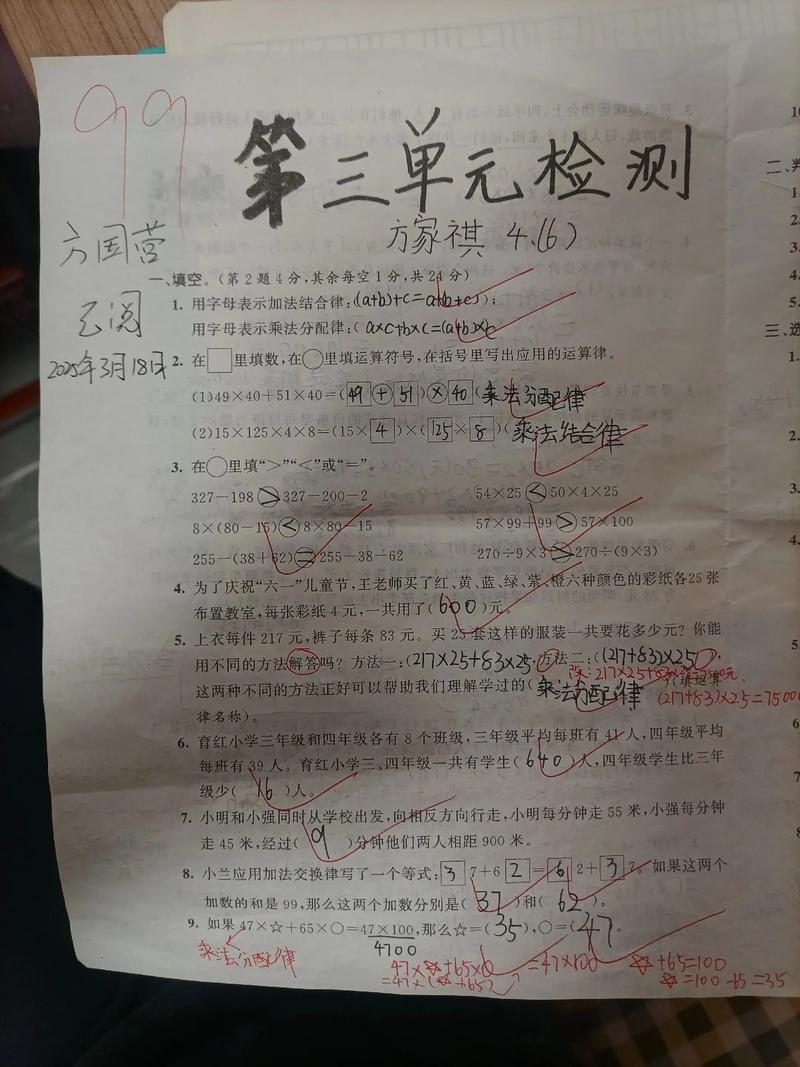 99
第三单元检测
方家祺 4.(6)
方国营
已阅
2025年3月18日
一、填空。(第2题4分,其余每空1分,共24分)
1. 用字母表示加法结合律:((a+b)+c=a+(b+c));
用字母表示乘法分配律:( a×c+b×c=(a+b)×c
2. 在□里填数,在○里填运算符号,在括号里写出应用的运算律。
(1)49×40+51×40=(49+51)×40(乘法分配律
(2)15×125×4×8=(15×4)×(125×8)(乘法结合律
3. 在○里填“>”“<”或“=”。
327-198>327-200-2 54×25<50×4×25
8×(80-15)<8×80-15 57×99+99>57×100
255-(38+62)=255-38-62 270÷9×3>270÷(9×3)
4. 为了庆祝“六一”儿童节,王老师买了红、黄、蓝、绿、紫、橙六种颜色的彩纸各25张
布置教室,每张彩纸4元,一共用了(600)元。
5. 上衣每件217元,裤子每条83元。买25套这样的服装一共要花多少元?你能
用不同的方法解答吗?方法一:(217×25+83×25),方法二:((217+83)×25),
217×25+83×25=7500元
这两种不同的方法正好可以帮助我们理解学过的(乘法分配律 (填运算
(217+83)×25=7500
律名称)。
6. 育红小学三年级和四年级各有8个班级,三年级平均每班有41人,四年级平均
每班有39人。育红小学三、四年级一共有学生(640)人,四年级学生比三年
级少(16)人。
7. 小明和小强同时从学校出发,向相反方向行走,小明每分钟走55米,小强每分钟
走45米,经过(9)分钟他们两人相距900米。
8. 小兰应用加法交换律写了一个等式:3 7+6 2=6 2+3 7。如果这两个
加数的和是99,那么这两个加数分别是(37)和(62)。
9. 如果47×☆+65×○=47×100,那么☆=(35),○=(47。
4700
乘法分配律
47×☆+65×○=47×100 ☆+65=100
=47×(☆+65) ☆=100-65=35
二、判
三、选